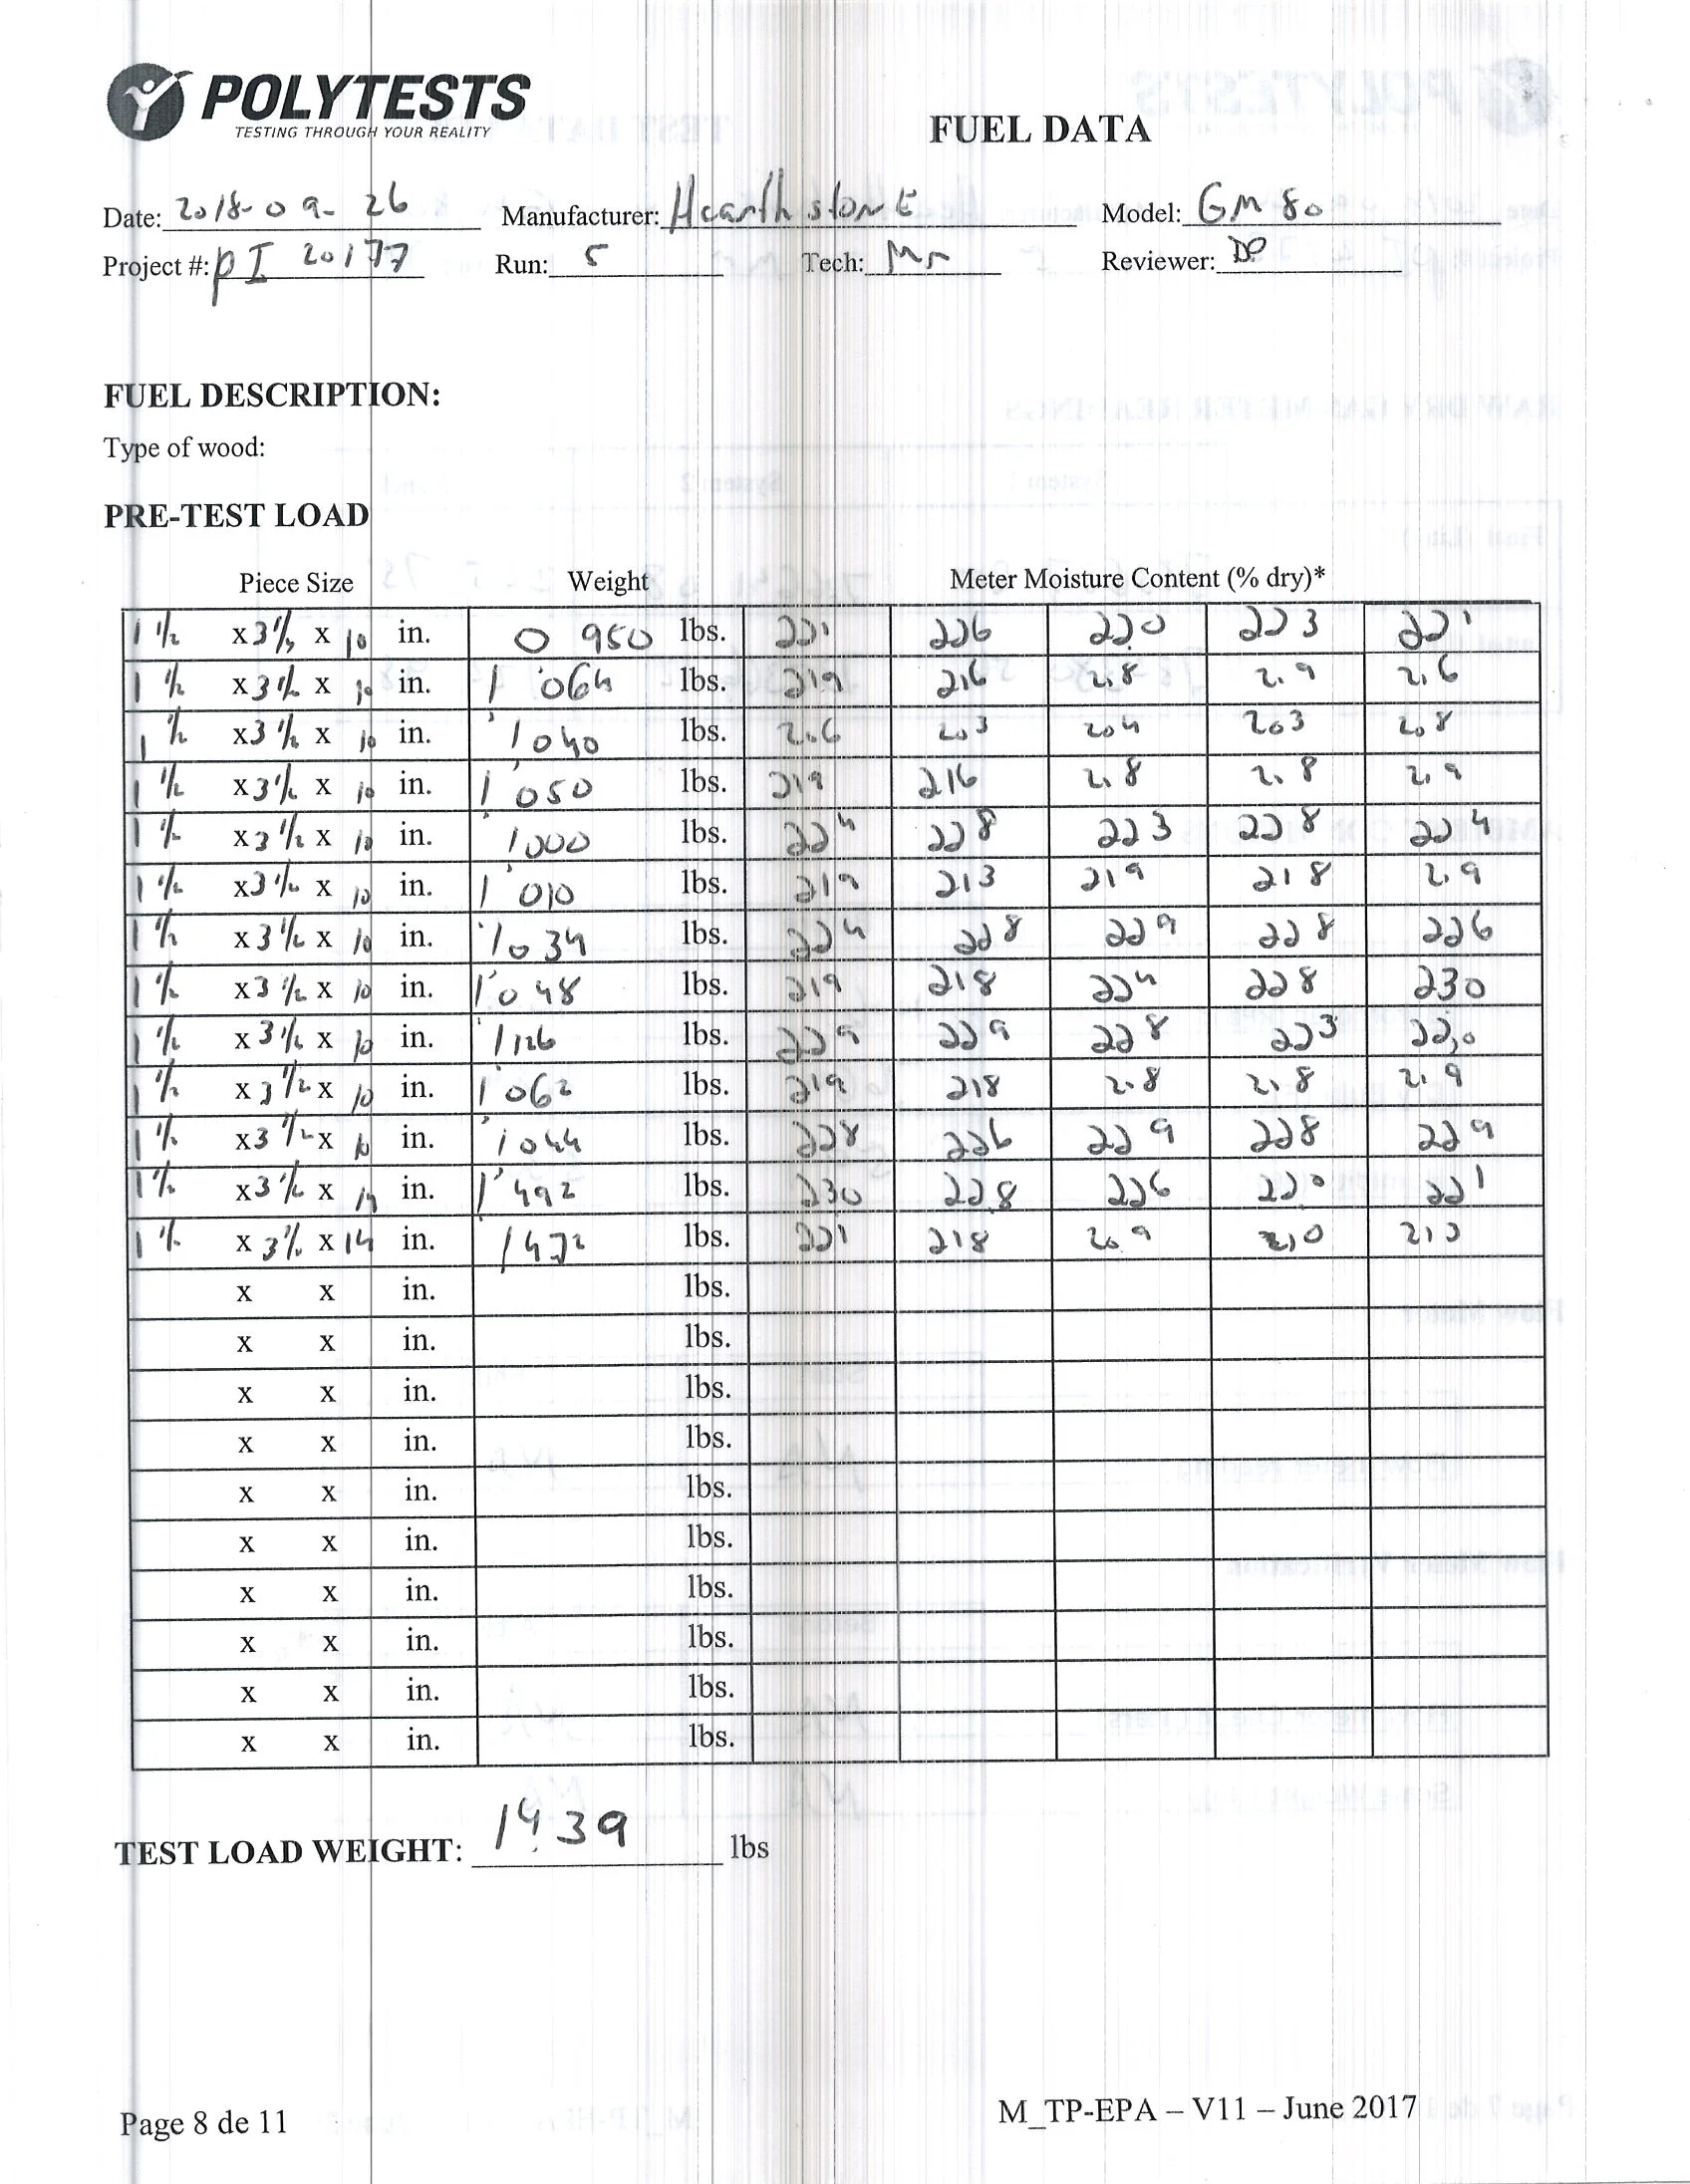 POLYTESTS
TESTING THROUGH YOUR REALITY
FUEL DATA
Date: 2018-09-26 Manufacturer: Hearthstone Model: GM 80
Project #: PI 20177 Run: 5 Tech: Reviewer: DP
FUEL DESCRIPTION:
Type of wood:
PRE-TEST LOAD
Piece Size Weight Meter Moisture Content (% dry)*
1 1/2 x 3 1/2 x 10 in. 0 950 lbs. 221 226 220 223 221
1 1/2 x 3 1/2 x 10 in. 1 064 lbs. 219 216 218 219 216
1 1/2 x 3 1/2 x 10 in. 1 040 lbs. 206 203 204 203 208
1 1/2 x 3 1/2 x 10 in. 1 050 lbs. 219 216 218 218 219
1 1/2 x 3 1/2 x 10 in. 1 000 lbs. 224 228 223 228 224
1 1/2 x 3 1/2 x 10 in. 1 010 lbs. 219 213 219 218 219
1 1/2 x 3 1/2 x 10 in. 1 034 lbs. 224 228 229 228 226
1 1/2 x 3 1/2 x 10 in. 1 048 lbs. 219 218 224 228 230
1 1/2 x 3 1/2 x 10 in. 1 126 lbs. 229 229 228 223 220
1 1/2 x 3 1/2 x 10 in. 1 062 lbs. 219 218 218 218 219
1 1/2 x 3 1/2 x 10 in. 1 044 lbs. 228 226 229 228 229
1 1/2 x 3 1/2 x 14 in. 1 492 lbs. 230 228 226 220 221
1 1/2 x 3 1/2 x 14 in. 1 472 lbs. 221 218 209 210 213
x x in. lbs.
x x in. lbs.
x x in. lbs.
x x in. lbs.
x x in. lbs.
x x in. lbs.
x x in. lbs.
x x in. lbs.
x x in. lbs.
x x in. lbs.
TEST LOAD WEIGHT: 14.39 lbs
Page 8 de 11
M_TP-EPA – V11 – June 2017